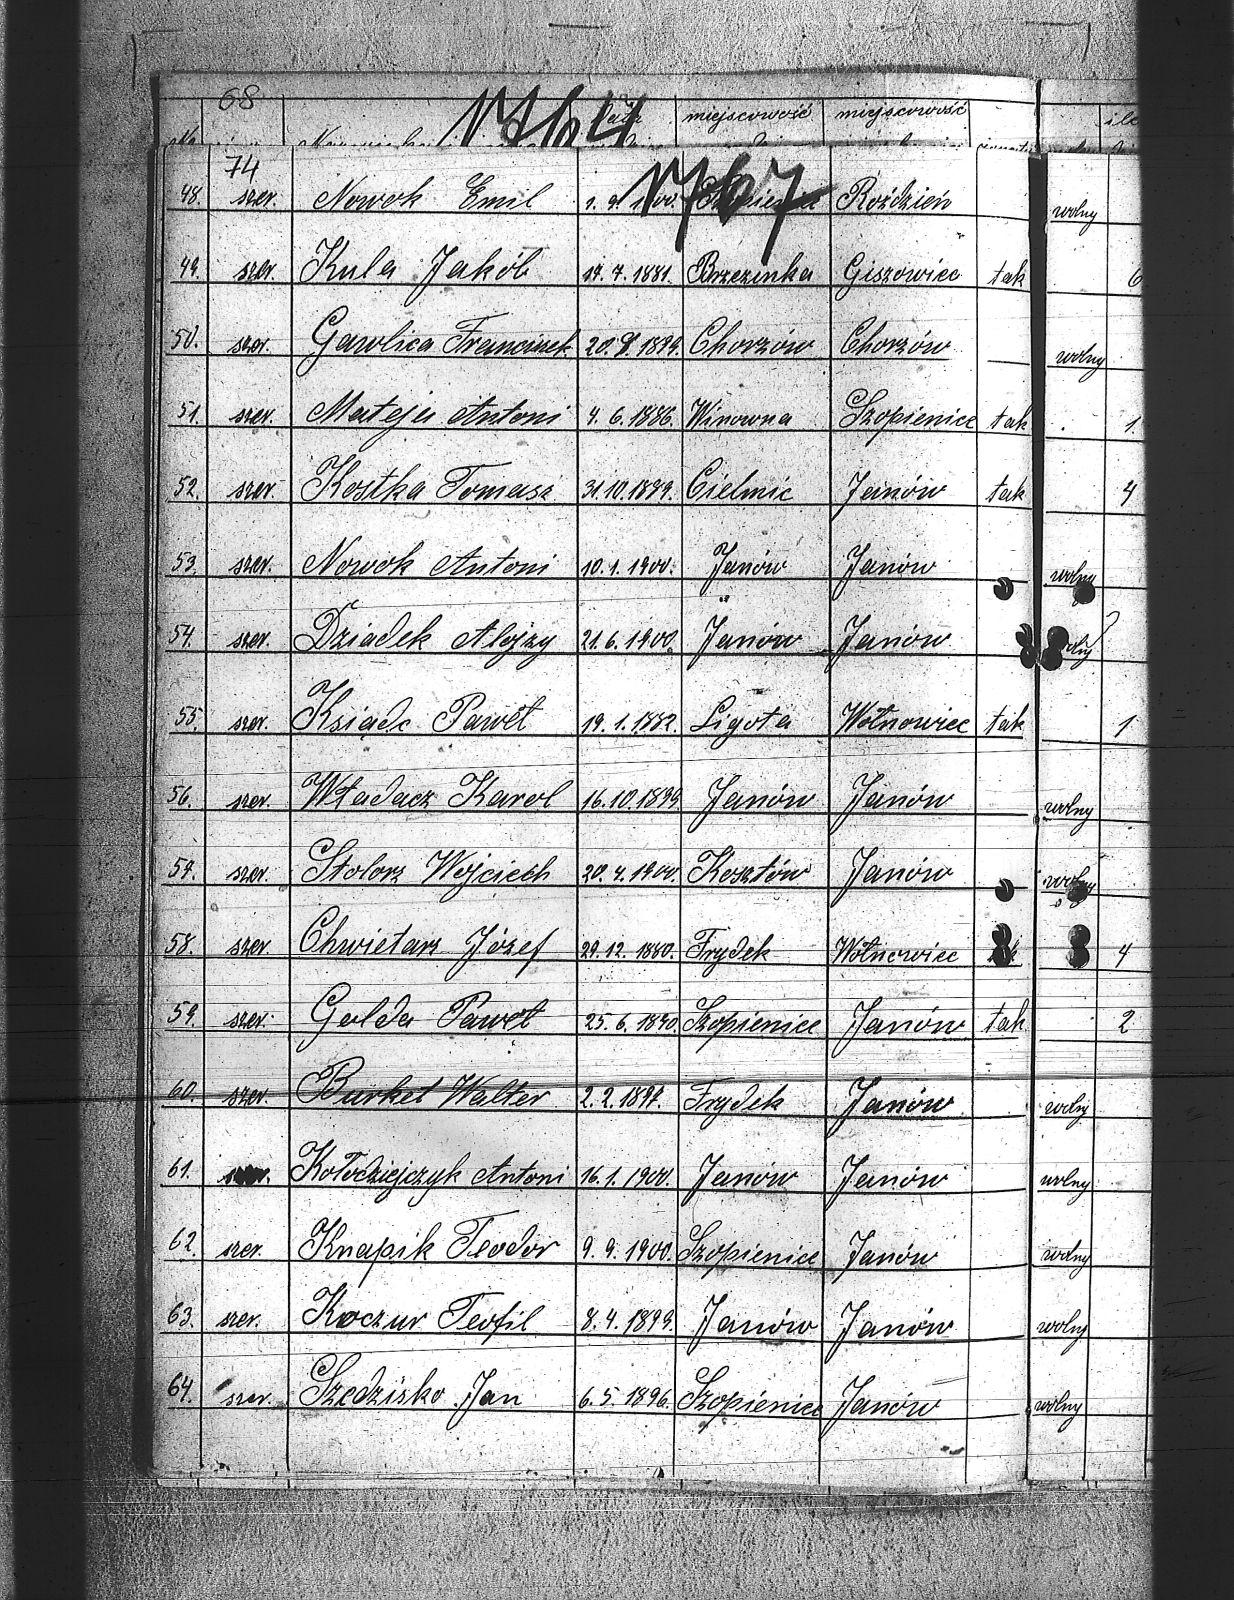 68
1764
miejscowość miejscowość ile
74
1767
48. szer. Nowok Emil Roździeń wolny
49. szer. Kula Jakób 17. 7. 1881. Brzezinka Giszowiec tak 6
50. szer. Gawlica Franciszek Chorzów Chorzów wolny
51. szer. Mateja Antoni 4. 6. 1886. Winowna Szopienice tak 1
52. szer. Kostka Tomasz Cielmic Janów tak 4
53. szer. Nowok Antoni 10. 1. 1900. Janów Janów wolny
54. szer. Dziadek Alojzy 21. 6. 1900. Janów Janów
55. szer. Ksiądc Paweł 19. 1. 1882. Ligota Wełnowiec tak 1
56. szer. Władacz Karol Janów Janów wolny
57. szer. Stolorz Wojciech 20. 4. 1900. Kosztów Janów wolny
58. szer. Chwietarz Józef 29. 12. 1880. Frydek Wełnowiec 4
59. szer. Golda Paweł Szopienice Janów tak 2
60. szer. Burket Walter 2. 2. 1897. Frydek Janów wolny
61. Kołodziejczyk Antoni 16. 1. 1900. Janów Janów wolny
62. szer. Knapik Teodor 9. 9. 1900. Szopienice Janów wolny
63. szer. Koczur Teofil 8. 4. 1899. Janów Janów wolny
64. szer. Szedzisko Jan 6. 5. 1896. Szopienice Janów wolny